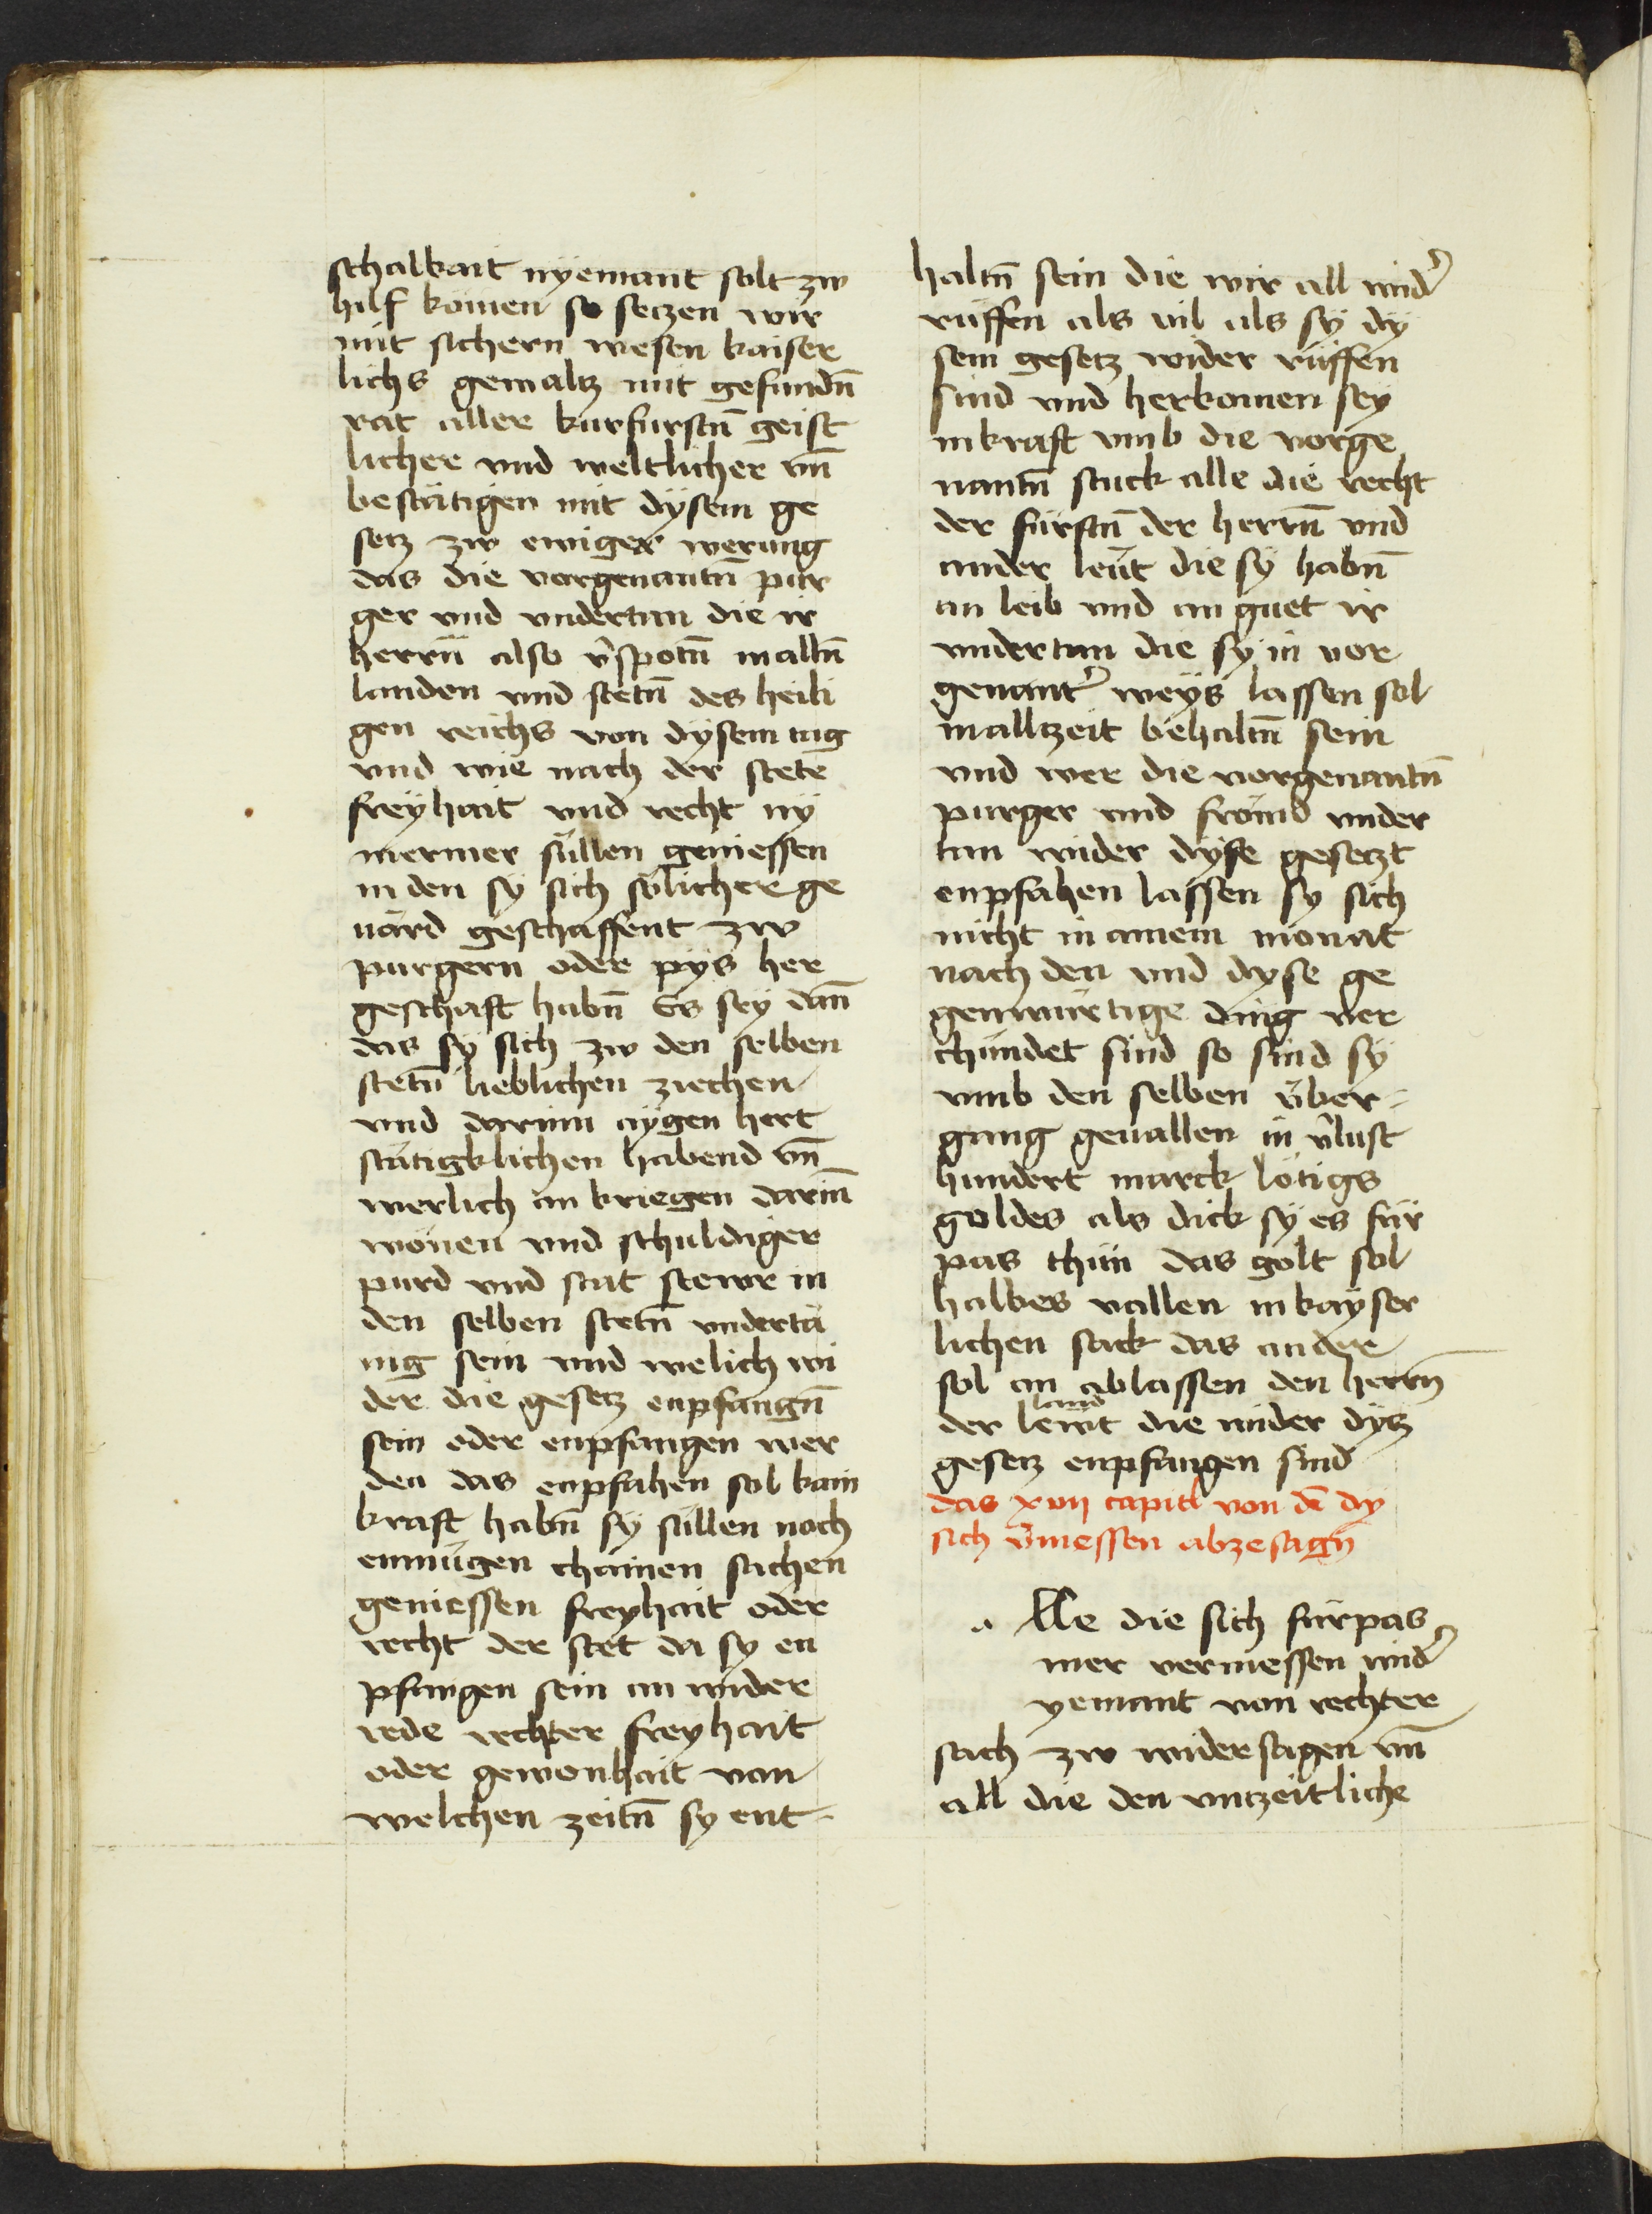 schalkait nyemant solt zw
hilf kömen so seczen wir
mit sichern wesen kaiser
lichs gewaltz mit gefundn̄
rat aller kurfurstn̄ geist
licher vnd weltlicher vn̄
bestätigen mit dysem ge
setz zw ewiger werung
das die vorgenantn̄ pur
ger vnd vndertan die ir
herrn̄ also v̾spotn̄ in alln̄
landen vnd stetn̄ des heili
gen reichs von dysem tag
vnd wie nach der stete
freyhait vnd recht ny
mermer süllen geniessen
in den sy sich sölicher ge
uärd geschaffent zw
purgern oder pys her
geschaft habn̄ Es sey dan̄
das sy sich zw den selben
stetn̄ lieblichen ziechen
vnd darinn aygen hert
stätigklichen habend vn̄
werlich an kriegen darin̄
wonen vnd schuldiger
purd vnd stat stewr in
den selben stetn̄ vndertä
nig sein vnd welich wi
der die gesetz enpfangn̄
sein oder enpfangen wer
den das enpfahen sol kain
kraft habn̄ sy süllen noch
enmügen chainen sachen
geniessen freyhait oder
recht der stet da sy en
pfangen sein an wider
rede rechter freyhait
oder gewonhait von
welchen zeitn̄ sy ent-
haltn̄ sein die wir all wid̾
rüffen als vil als sy dy
sem gesetz wider rüffen
sind vnd herkomen sey
in kraft vmb die vorge
nantn̄ stuck alle die recht
der fürstn̄ der herrn̄ vnd
ander leüt die sy habn̄
an leib vnd an guet ir
vndertan die sy in vor
genant̾ weys lassen sol
in allzeit behaltn̄ sein
vnd wer die vorgenantn̄
purger vnd frömd vnder
tan wider dyse gesetzt
enpfahen lassen sy sich
nicht in ainem monat
nach den vnd dyse ge
genwürtige ding ver
chündet sind so sind sy
vmb den selben über-
gang geuallen in v̾lust
hundert marck lötigs
goldes als dick sy es für
pas thün das golt sol
halbes vallen in kayser
lichen sack das ander
sol an ablassen den herrn̄
land
der lewt die wider dytz
gesetz enpfangen sind
das xvij capitl von dē dy
sich v̾messen abzesagn̄
a lle die sich fürpas
mer vermessen wid̾
yemant von rechter
sach zw widersagen vn̄
all die den vnzeitliche